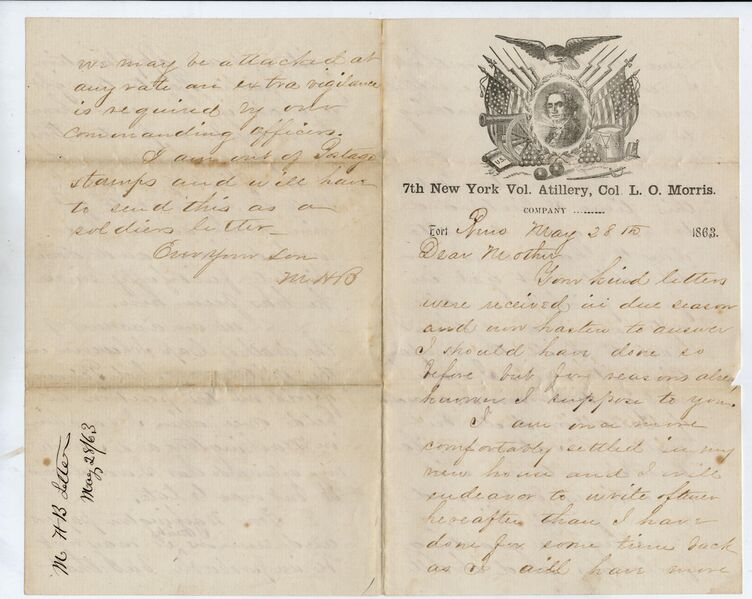 we may be attacked at
any rate an extra vigilance
is required by our
commanding officers.
I am out of Potage
stamps and will have
to send this as a
soldiers letter
Ever your Son
M H B
M H B Letter
May 28/63
U.S.
7th New York Vol. Atillery, Col. L. O. Morris.
COMPANY
Fort Reno May 28th 1863.
Dear Mother
Your kind letters
were received in due season
and now hasten to answer
I should have done so
before but for reasons
however I suppose to you.
I am once more
comfortably settled in my
new house and I will
endeavor to write oftener
hereafter than I have
done for some time back
as I will have more